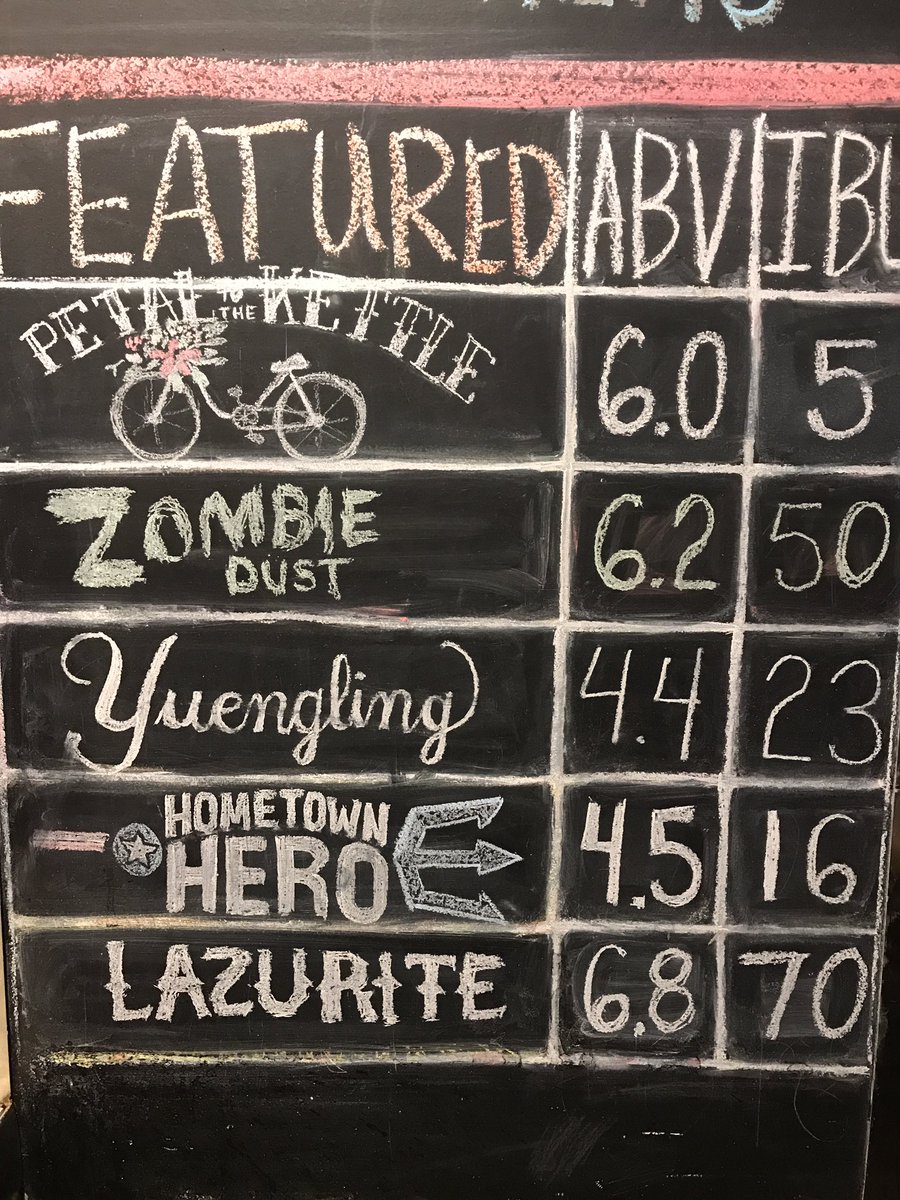 FEATURED ABV IBU
PETAL TO THE KETTLE 6.0 5
ZOMBIE DUST 6.2 50
Yuengling 4.4 23
HOMETOWN HERO 4.5 16
LAZURITE 6.8 70